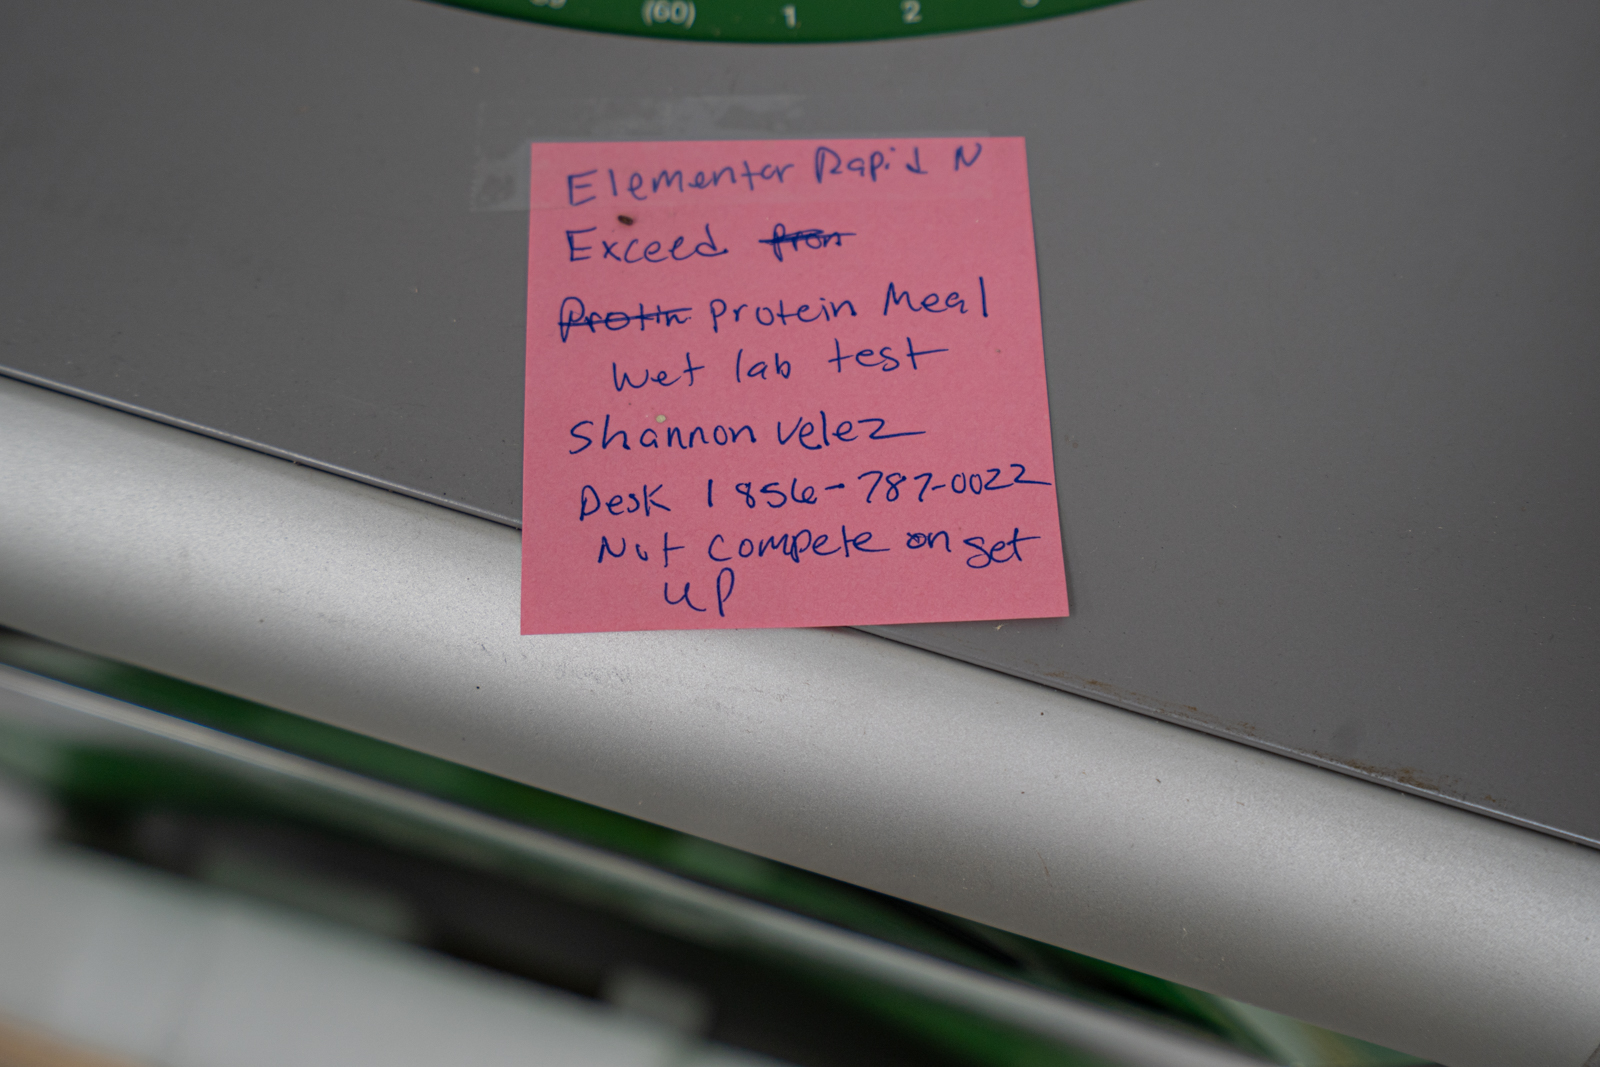 (60) 1 2
Elementar Rapid N
Exceed fron
Protin Protein Meal
Wet lab test
Shannon Velez
Desk 1 856-787-0022
Not compete on set
up